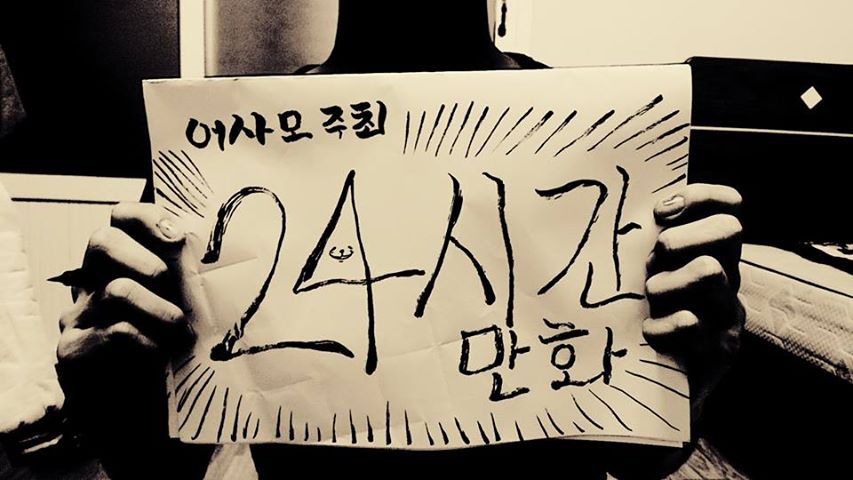 어사모 주최
24시간
만화